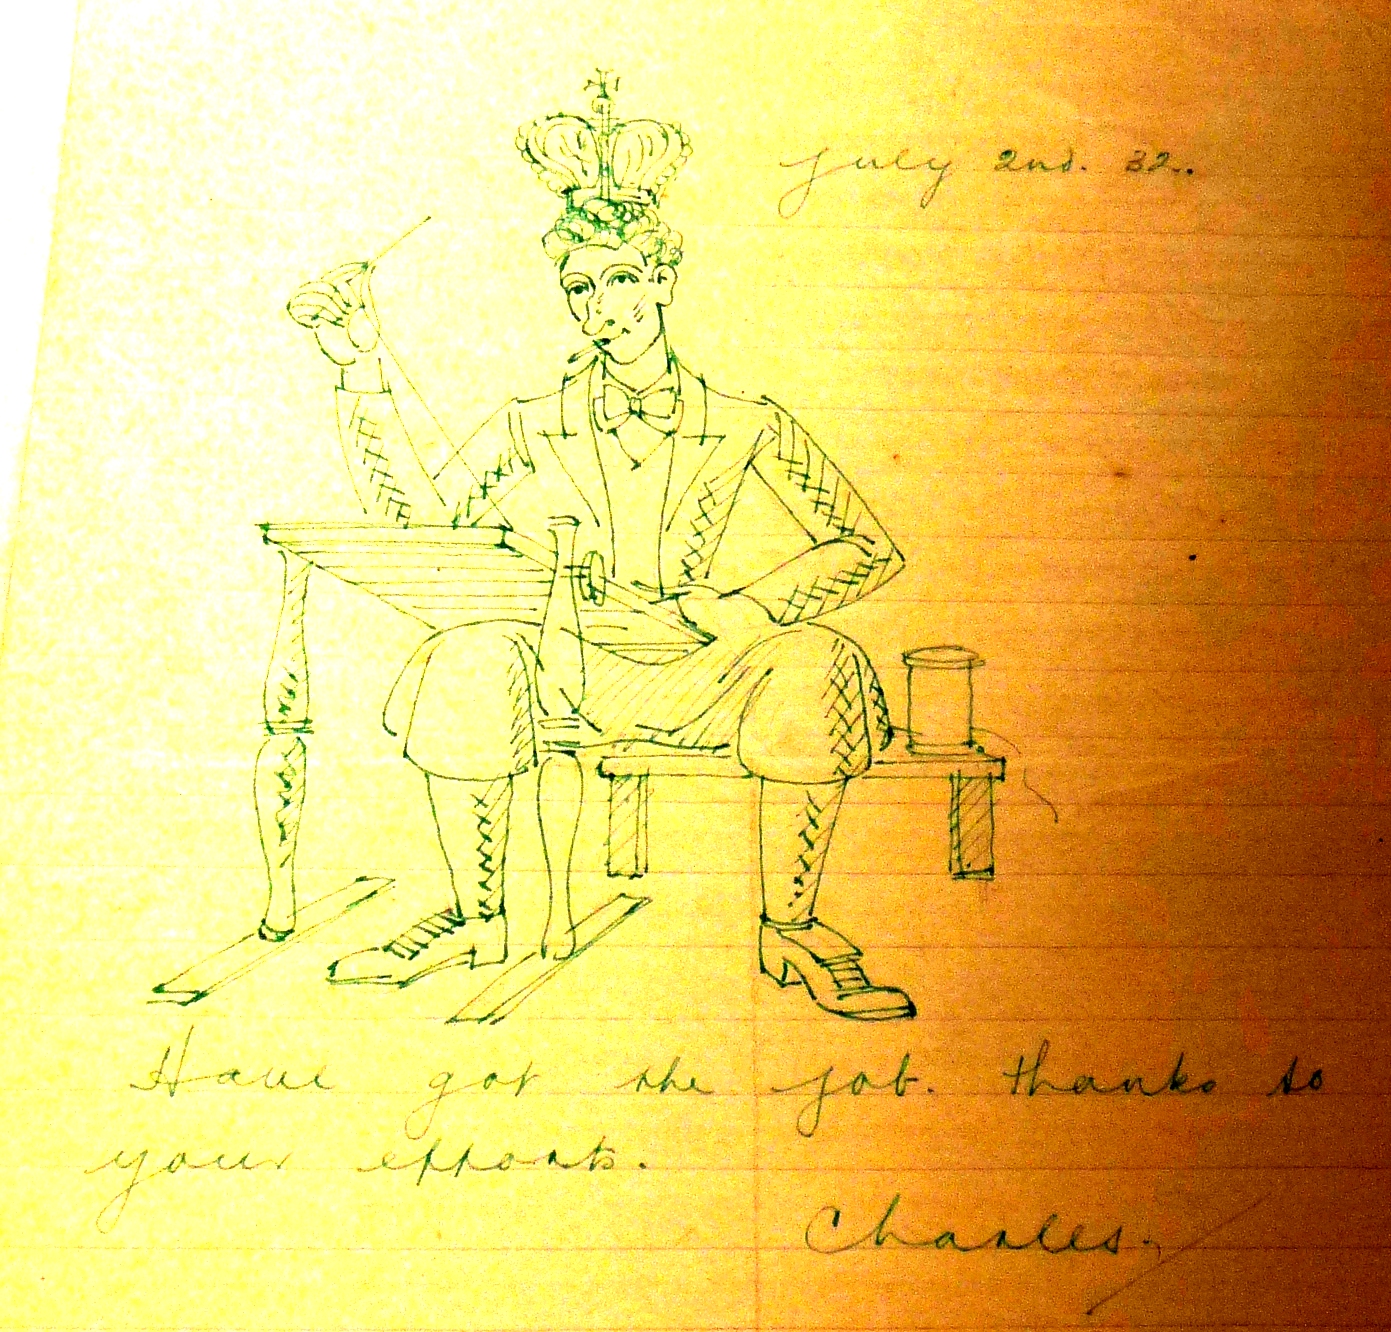 July 2nd. 32..
Have got the job. thanks to
your efforts.
Charles.